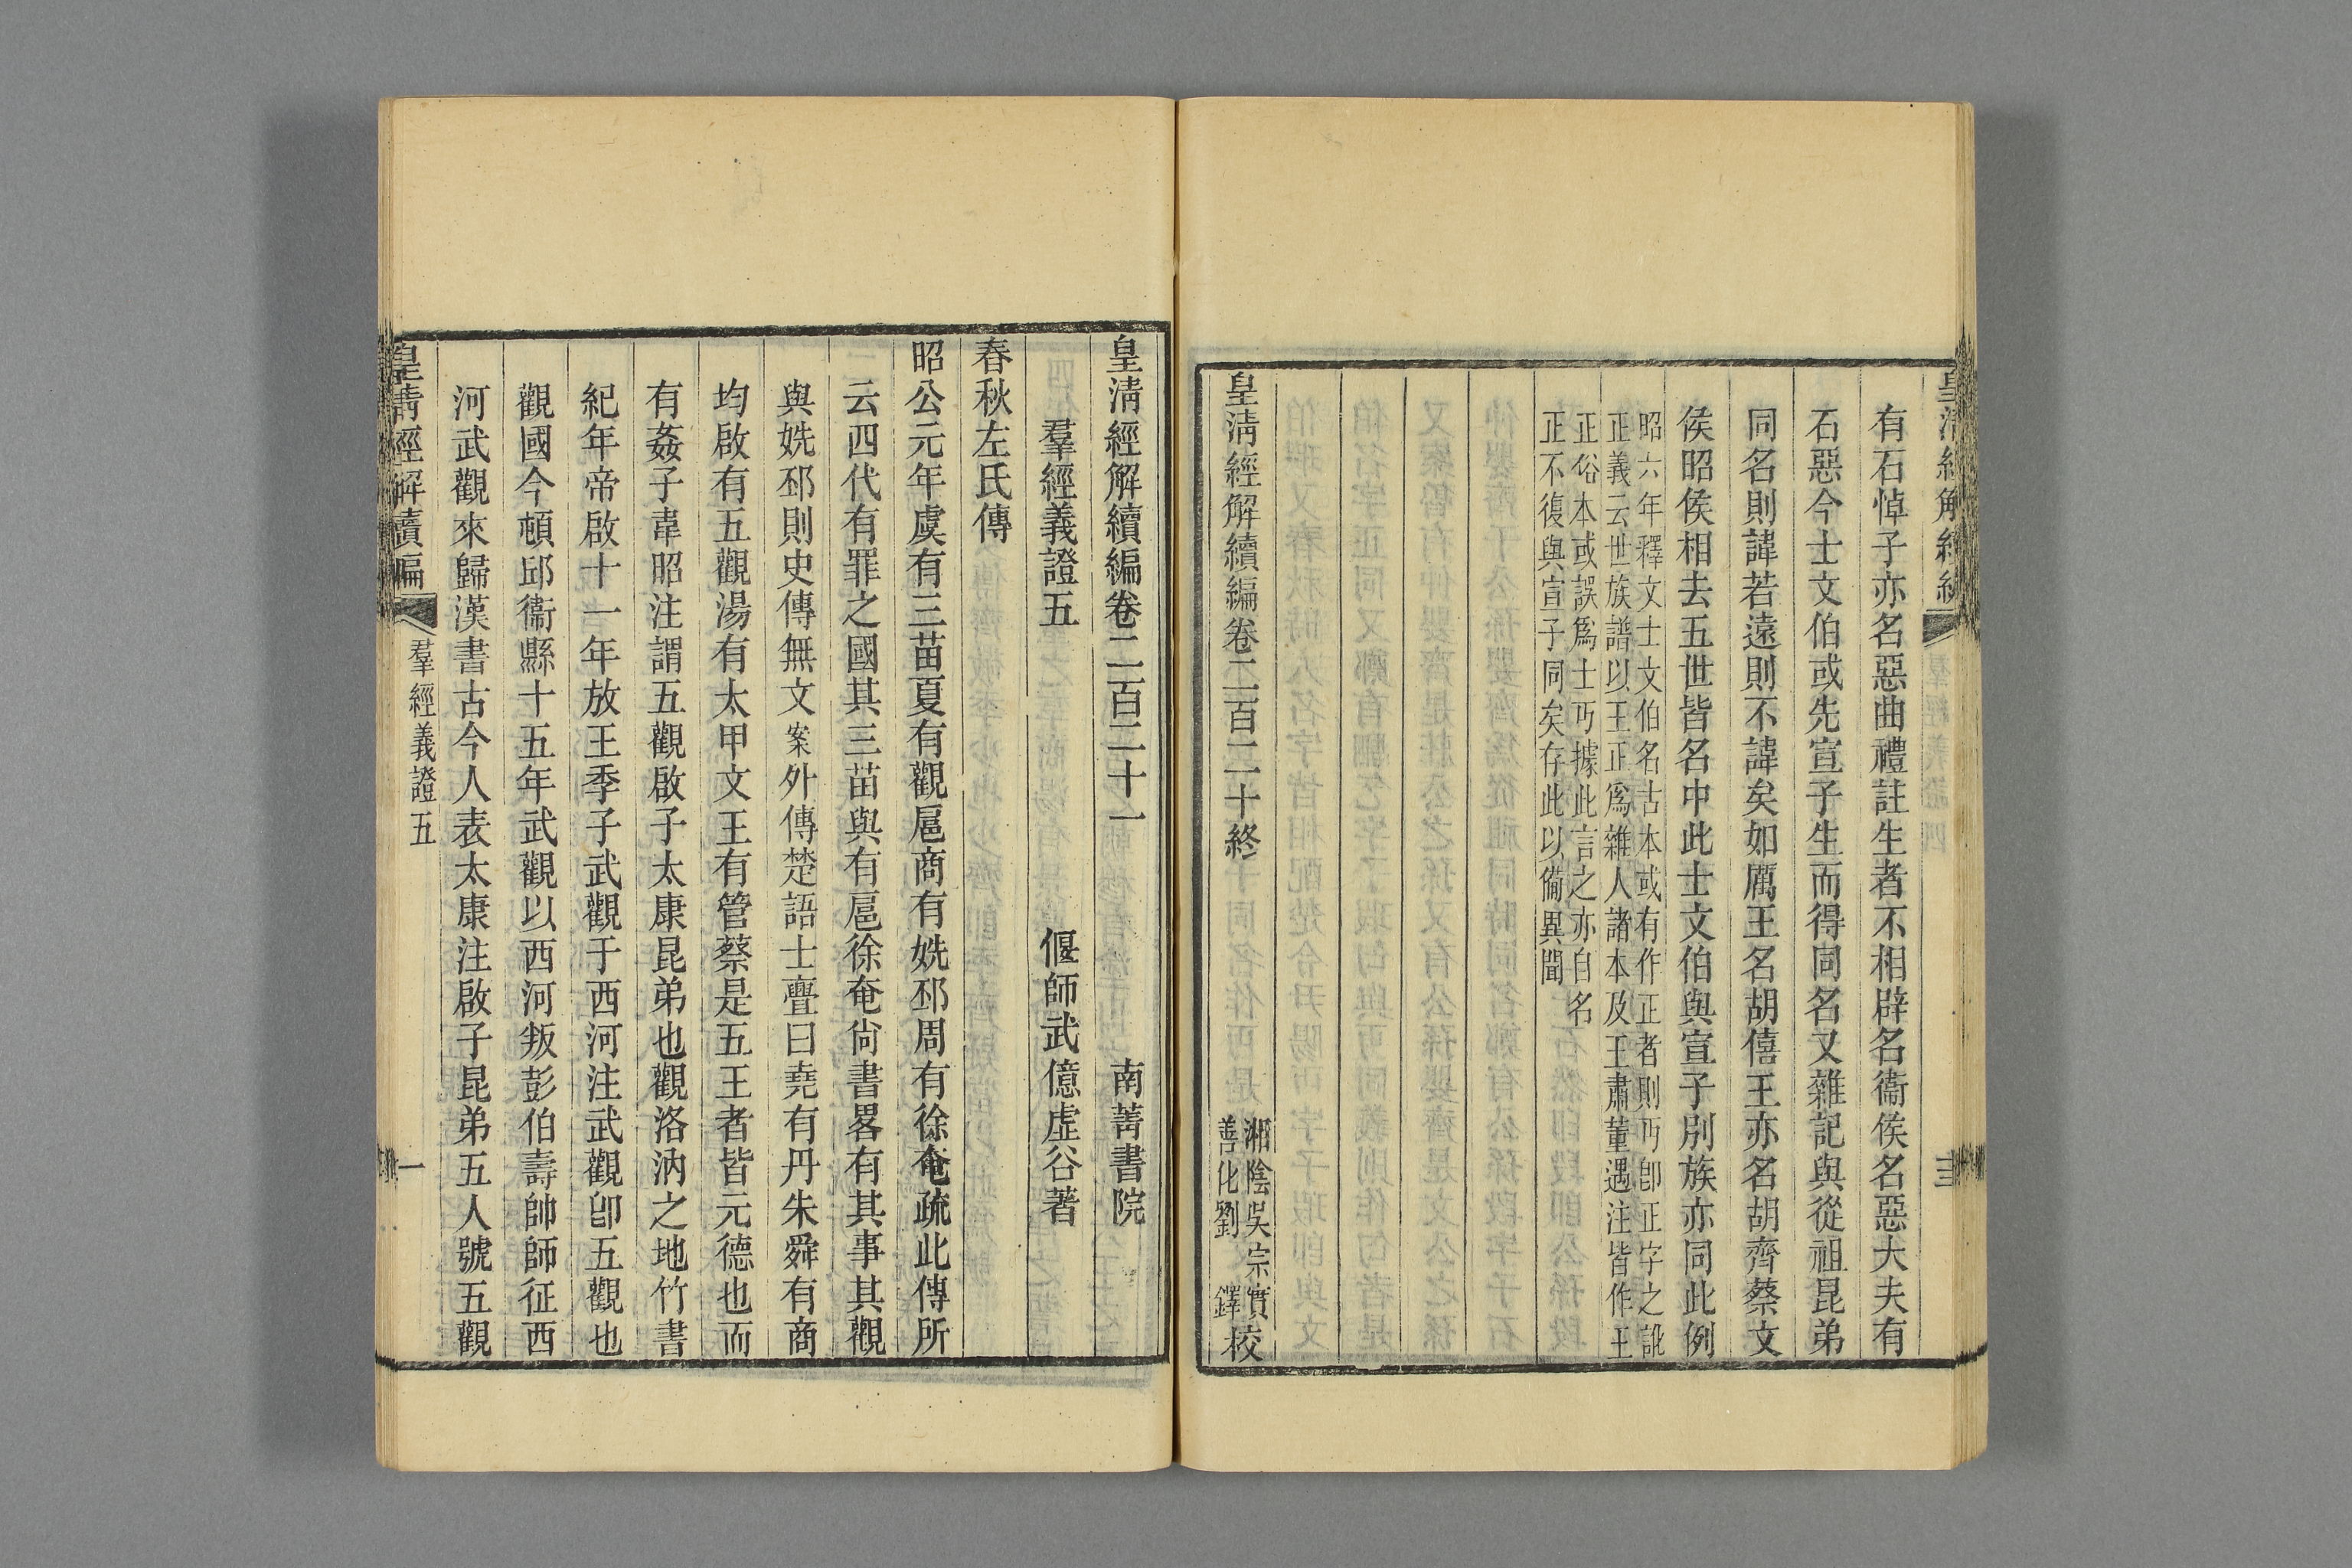 有石悼子亦名惡曲禮註生者不相辟名衞侯名惡大夫有
石惡今士文伯或先宣子生而得同名又雜記與從祖昆弟
同名則諱若遠則不諱矣如厲王名胡僖王亦名胡齊蔡文
侯昭侯相去五世皆名申此士文伯與宣子別族亦同此例
昭六年釋文士文伯名古本或有作正者則丏卽正字之訛
正義云世族譜以王正爲雜人諸本及王肅董遇注皆作王
正俗本或誤爲士丏據此言之亦自名
正不復與宣子同矣存此以備異聞
皇淸經解續編卷二百二十終
湘陰吳宗實
善化劉鐸
校
皇淸經解續編卷二百二十一
南菁書院
羣經義證五
偃師武億虛谷著
春秋左氏傳
昭公元年虞有三苗夏有觀扈商有姺邳周有徐奄疏此傳所
云四代有罪之國其三苗與有扈徐奄尙書畧有其事其觀
與姺邳則史傳無文案外傳楚語士亹曰堯有丹朱舜有商
均啟有五觀湯有太甲文王有管蔡是五王者皆元德也而
有姦子韋昭注謂五觀啟子太康昆弟也觀洛汭之地竹書
紀年帝啟十一年放王季子武觀于西河注武觀卽五觀也
觀國今頓邱衞縣十五年武觀以西河叛彭伯壽帥師征西
河武觀來歸漢書古今人表太康注啟子昆弟五人號五觀
皇淸經解續編
羣經義證五
一